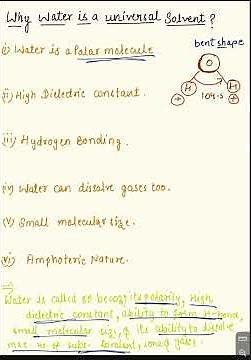 Why Water is a universal Solvent?
(i) Water is a Polar molecule
bent shape
O
H H
104.5
+ +
(ii) High Dielectric constant.
(iii) Hydrogen Bonding.
(iv) Water can dissolve gases too.
(v) Small molecular size.
(vi) Amphoteric Nature.
⇒
Water is called so becoz its polarity, High
dielectric constant, ability to form H-bond,
small molecular size, & its ability to dissolve
max. no of subs. covalent, ionic & gases.